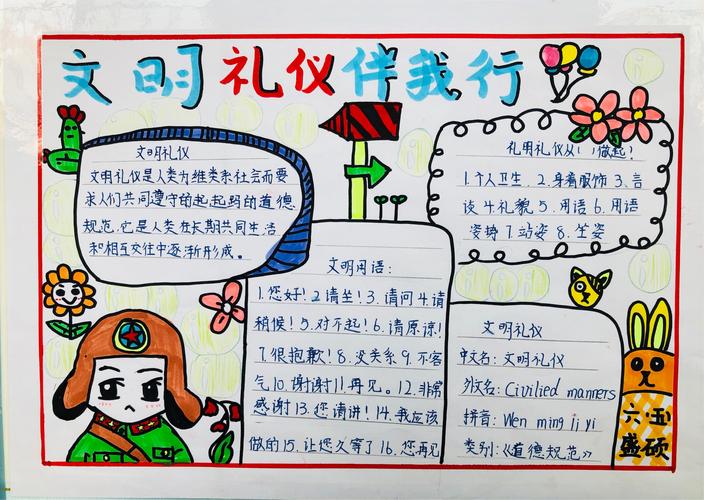 文明礼仪伴我行
文明礼仪
文明礼仪是人类为维类系社会而要
求人们共同遵守的起起码的道德
规范,它是人类在长期共同生活
和相互交往中逐渐形成。
文明用语:
1.您好!2请坐!3.请问4.请
稍候!5.对不起!6.请原谅!
7很抱歉!8.没关系9.不客
气10.谢谢11再见。12.非常
感谢13.您请讲!14.我应该
做的15.让您久等了16.您再见
礼明礼仪从 做起!
1.个人卫生.2.身着服饰3.言
谈4.礼貌5.用语6.用语
姿势7站姿8.坐姿
文明礼仪
中文名:文明礼仪
外文名:Civilied manners
拼音:Wen ming li yi
类别:《道德规范》
六.五
盛硕